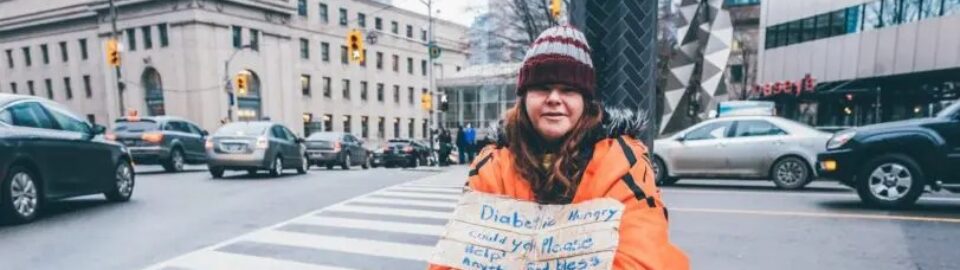 Diabetic Hungry
could you Please
Help
God bless